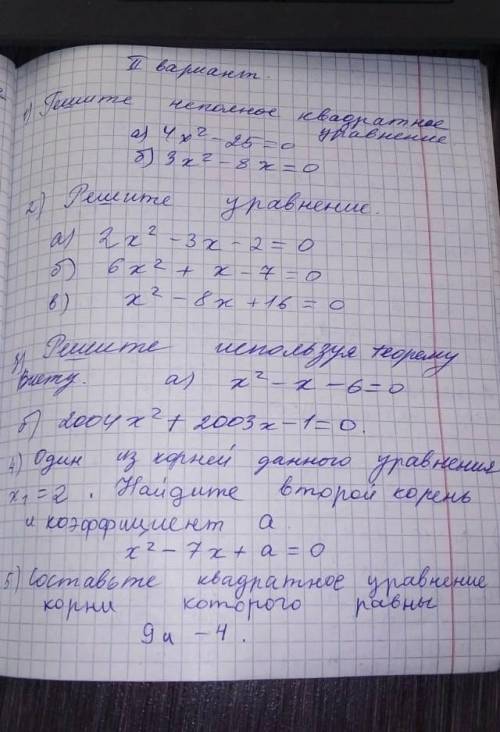 II вариант.
1) Решите неполное квадратное
а) 4x² - 25 = 0 уравнение
б) 3x² - 8x = 0
2) Решите уравнение.
а) 2x² - 3x - 2 = 0
б) 6x² + x - 7 = 0
в) x² - 8x + 16 = 0
3) Решите используя теорему
Виету. а) x² - x - 6 = 0
б) 2004x² + 2003x - 1 = 0.
4) Один из корней данного уравнения
x₁ = 2. Найдите второй корень
и коэффициент a
x² - 7x + a = 0
5) Составьте квадратное уравнение
корни которого равны
9 и -4.